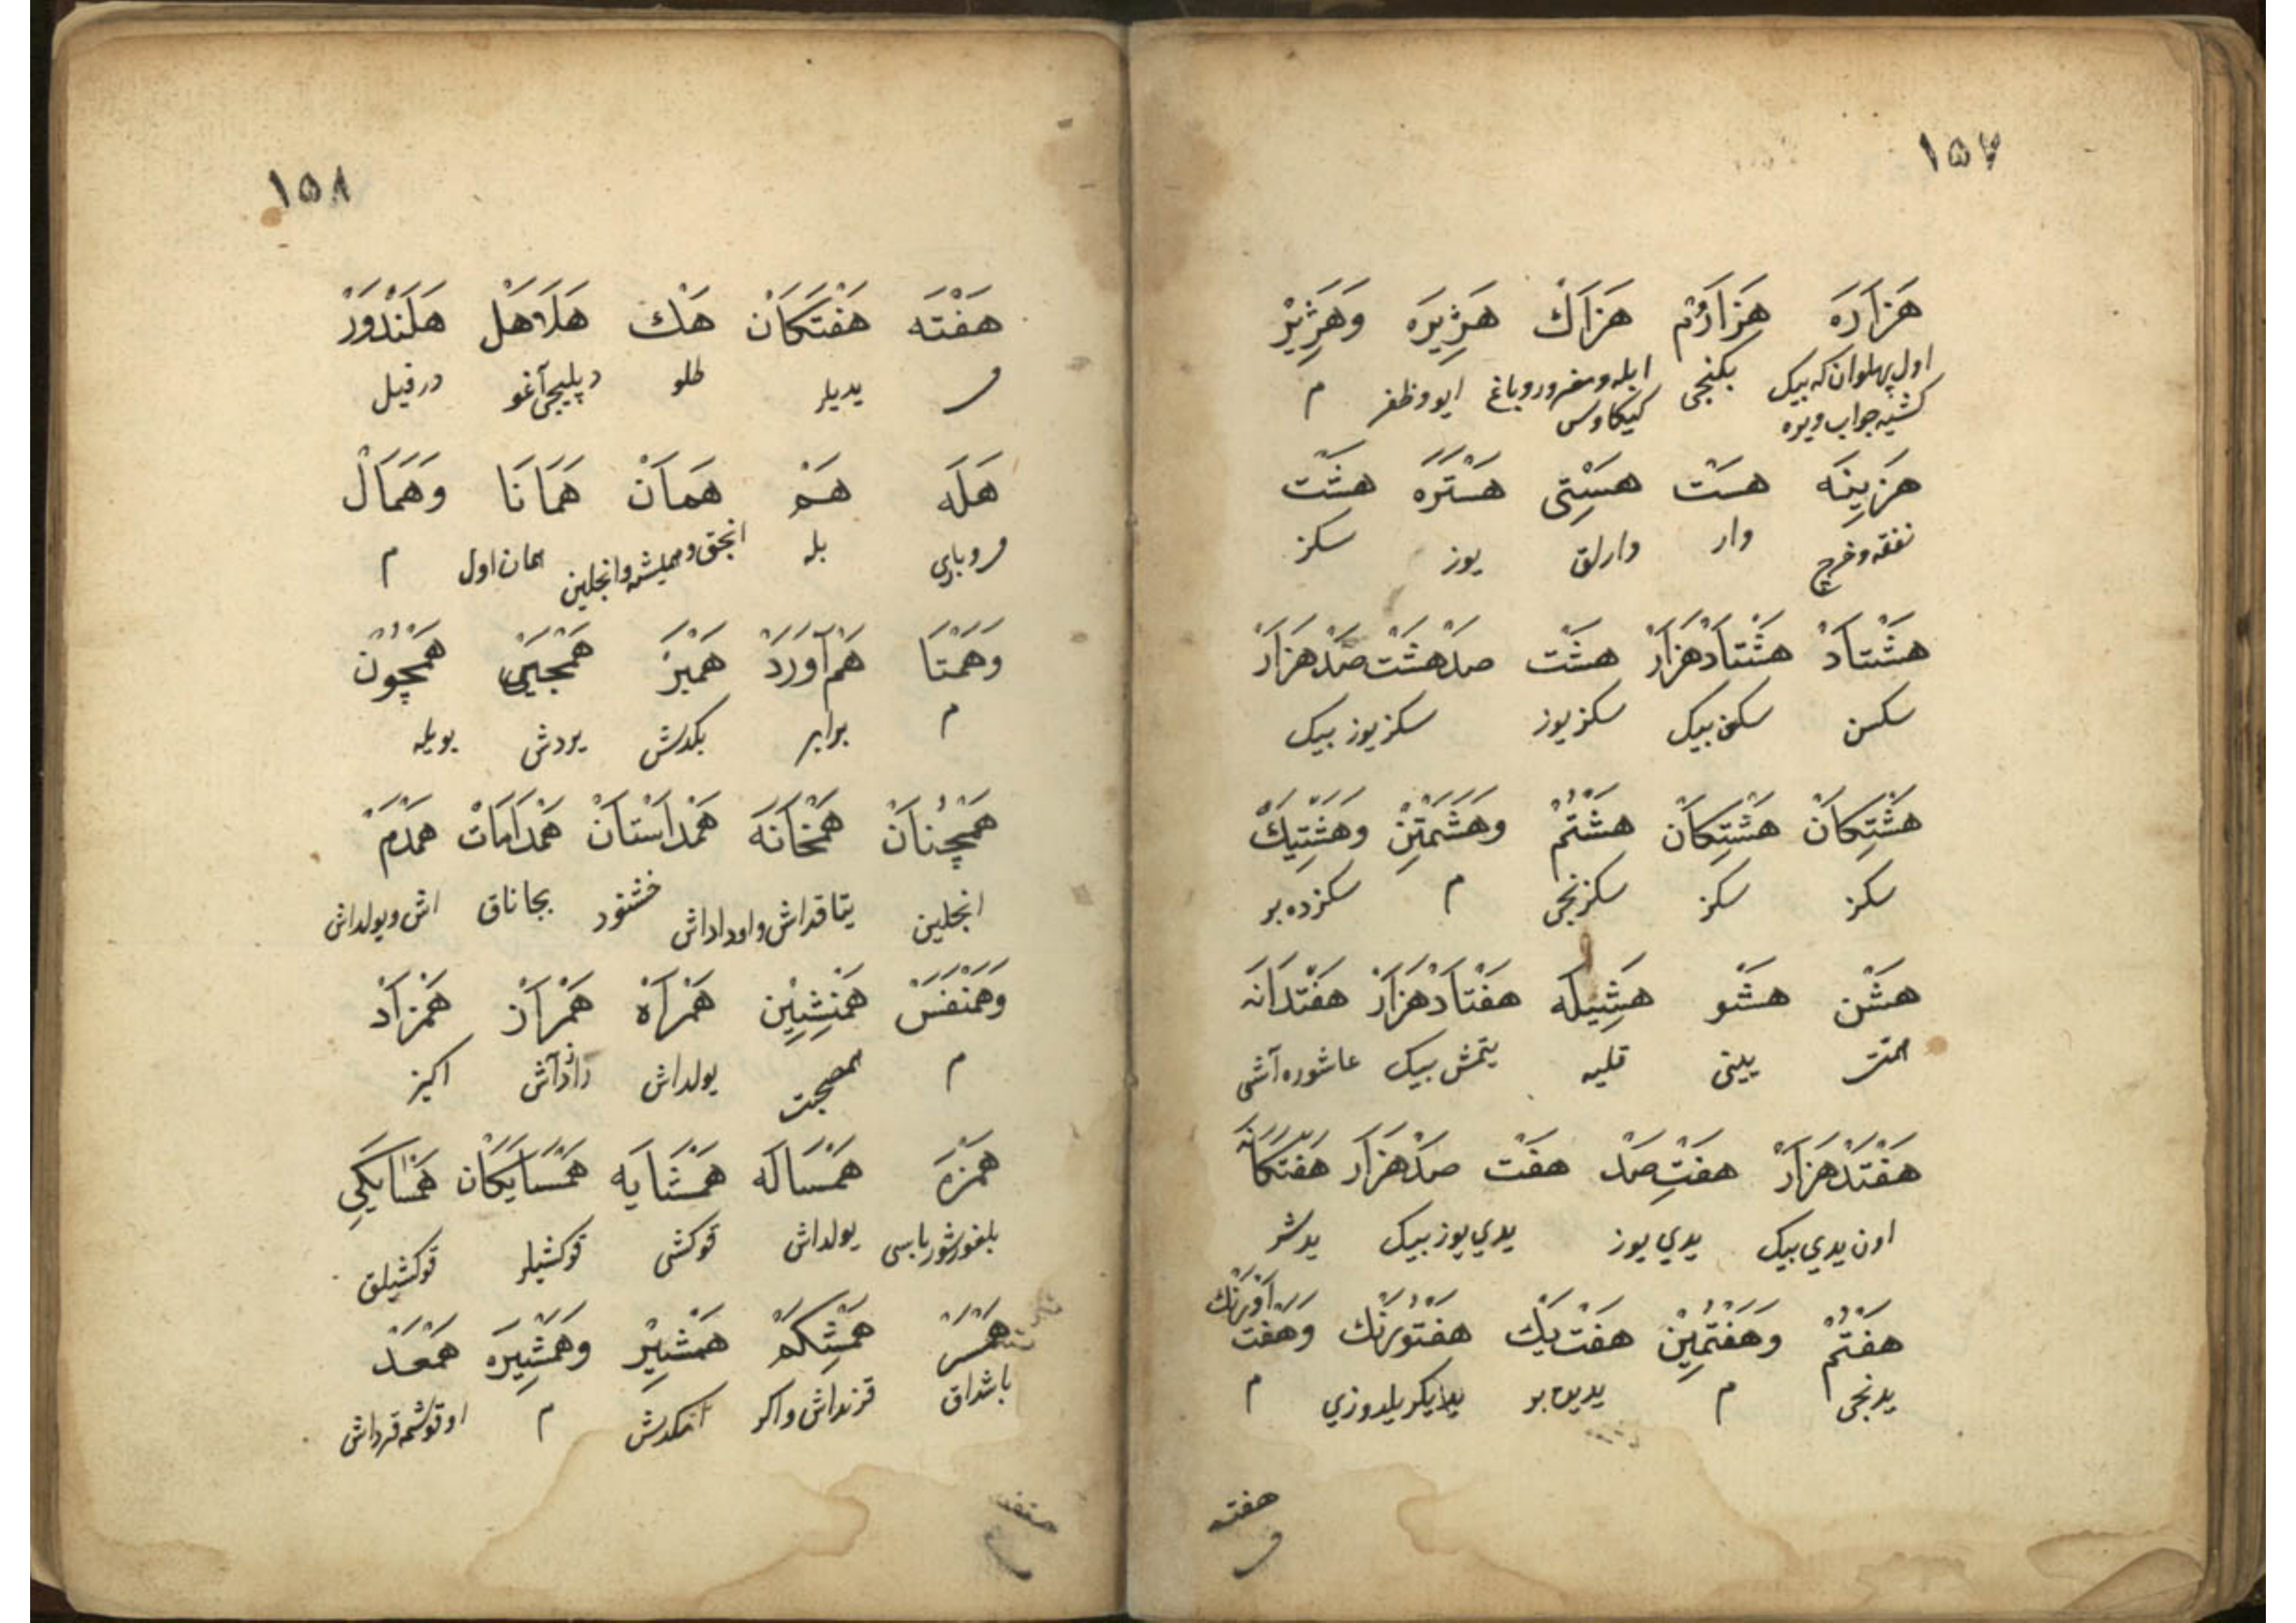 ١٥٧
هَزَارَه هَزَارُمْ هَزَاكْ هَژِيرَه وَهَژِيْر
اول پهلوان كه بيك بكنجى ابله ومغرور وباغ ايو وظفر م
كشيه جواب ويره كيكاوس
هَزِينَه هَسْت هَسْتِى هَسْتَرَه هَشْت
نفقه وخرج وار وارلق يوز سكز
هَشْتَادْ هَشْتَادْهَزَارْ هَشْت صَدْ هَشْت صَدْهَزَارْ
سكسن سكسن بيك سكز يوز سكز يوز بيك
هَشْتِكَانْ هَشْتِكَانْ هَشْتُمْ وَهَشْتَمِيْن وَهَشْتِيَكْ
سكز سكز سكزنجى م سكزده بر
هَشْن هَشْو هَشِيلَه هَفْتَادْهَزَارْ هَفْتْدَانَه
يينى قليه يتمش بيك عاشوره آشى
هَفْتَدْهَزَارْ هَفْتِ صَدْ هَفْت صَدْهَزَارْ هَفْتَكَانَه
اون يدي بيك يدي يوز يدي يوز بيك يدشر
هَفْتُمْ وَهَفْتُمِيْن هَفْت يَكْ هَفْتُورَنْك وَهَفْت اَوْرَنْك
يدنجى م يديده بر يديكر يلدوزي م
هفته
١٥٨
هَفْتَه هَفْتَكَانْ هَكْ هَلَاهَلْ هَلَنْدَوَرْ
يديلر طلو دپليجى آغو درفيل
هَلَه هَمْ هَمَانْ هَمَانَا وَهَمَالْ
بله انجق وهميشه وانجلين همان اول م
وَهَمْتَا هَمْ آوَرَدْ هَمْبَرْ هَمْچِيَىْ هَمْچُونْ
م برابر بكدش يردش بويله
هَمْچُنَانْ هَمْخَانَه هَمْدَاسْتَانْ هَمْدَامَاتْ هَمْدَمْ
انجلين يتاقداش واوداداش خشنود بجاناق اش ويولداش
وَهَمْنَفَسْ هَمْنِشِيْن هَمْرَاهْ هَمْرَازْ هَمْزَادْ
م همصحبت يولداش رازداش اكيز
هَمْزَه هَمْسَالَه هَمْسَايَه هَمْسَايَكَان هَمْسَايَكِي
بلغور شورباسى يولداش قوكشى قوكشيلر قوكشيلق
هَمْسَرْ هَمْشِكَمْ هَمْشِيْر وَهَمْشِيرَه هَمْعَدْ
باشداق قرنداش واكز امكدش م